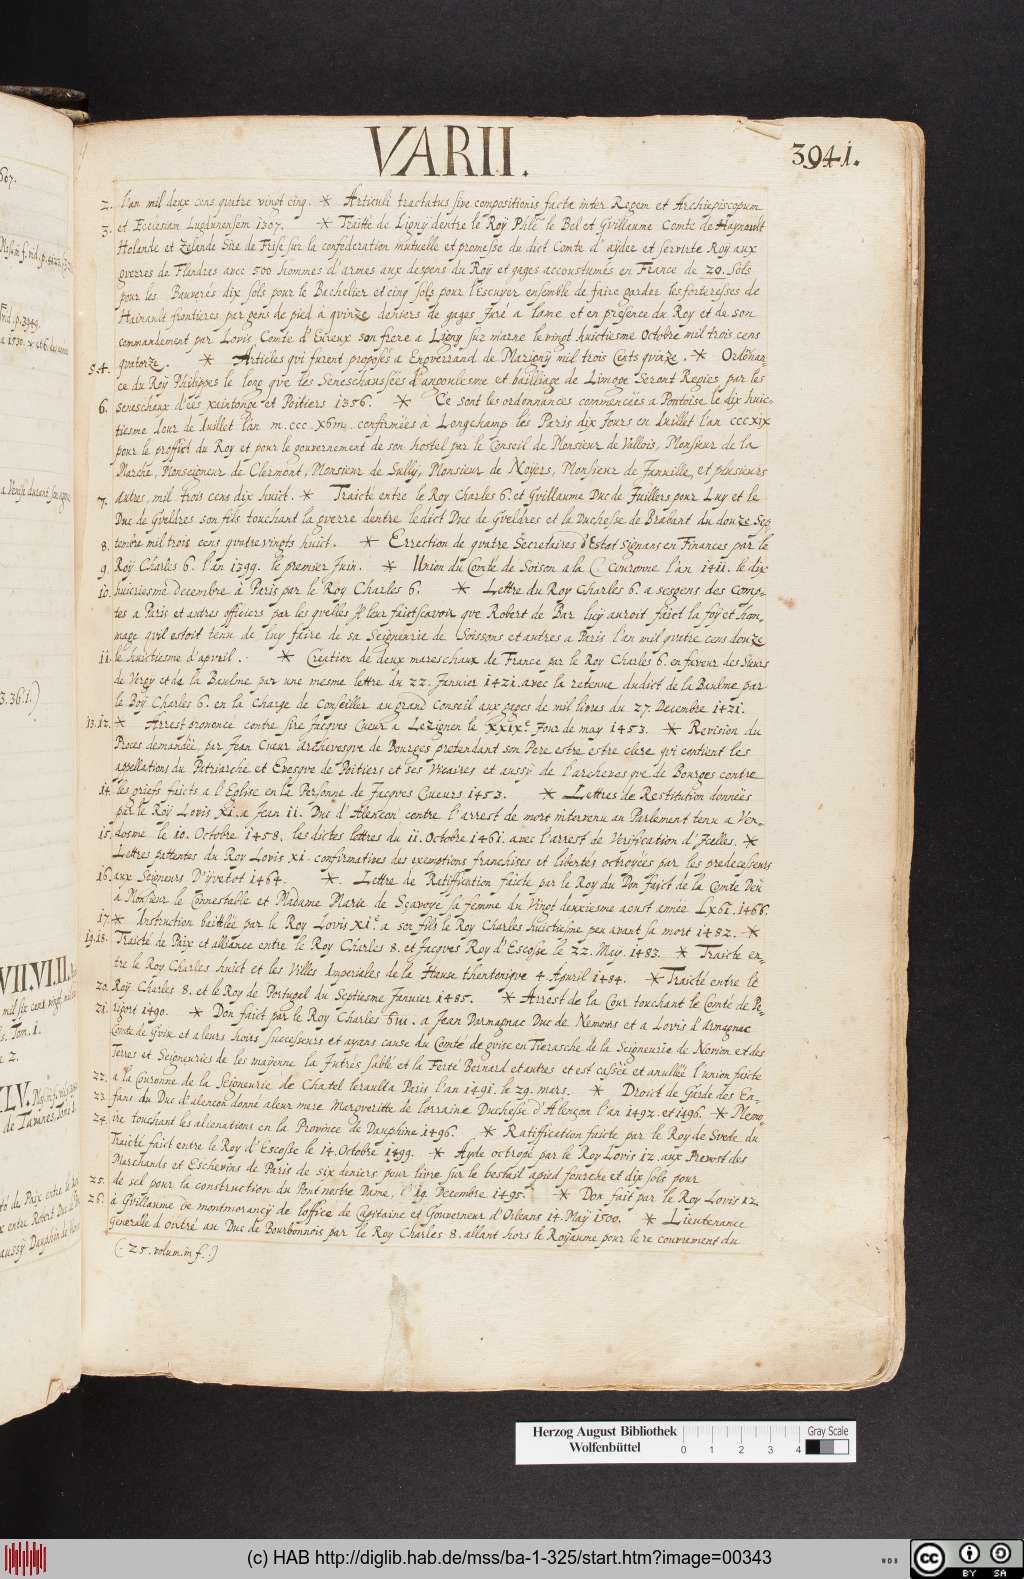 VARII.
3941.
2. l'an mil deux cens quatre vingt cinq. * Articuli tractatus sive compositionis factæ inter Regem et Archiepiscopum
3. et Ecclesiam Lugdunensem 1307. * Traitté de Ligny dentre le Roy Phlē le Bel et Gvillaume Comte de Haynault
Holande et Zelande Sire de Frise sur la confederation mutuelle et promesse du dict Comte d'ayder et servir te Roy aux
gverres de Flandres avec 500 hommes d'armes aux despens du Roy et gages accoustumés en France de 20. sols
pour les Bannerés dix sols pour le Bachelier et cinq sols pour l'Escuyer ensemble de faire garder les forteresses de
Hainault frontieres par gens de pied a qvinze deniers de gages juré a l'ame et en presence du Roy et de son
commandement par Lovis Comte d'Eureux son frere a Ligny sur marne le vingt huictiesme Octobre mil trois cens
qvatorze. * Articles qvi furent proposés a Engverrand de Marigny mil trois Cents qvinze. * Ordonan-
5.4. ce du Roy Philippes le long qve les Seneschaussées d'angoulesme et bailliage de Limoge Seront Regies par les
6. seneschaux d'ées xaintonge et Poitiers 1356. * Ce sont les ordonnances commencées a Pontoise le dix huic-
tiesme Jour de Iuillet l'an m.ccc.x6iii. confirmées à Longchamp lés Paris dix Jours en Iuillet l'an cccxix
pour le proffict du Roy et pour le gouvernement de son hostel par le Conseil de Monsieur de Vallois, Monsieur de la
Marche, Monseigneur de Clermont, Monsieur de Sully, Monsieur de Noyers, Monsieur de Janville, et plusieurs
7. autres, mil trois cens dix huit. * Traicte entre le Roy Charles 6. et Gvillaume Duc de Juillers pour Luy et le
Duc de Gveldres son fils touchant la gverre dentre ledict Duc de Gveldres et la Duchesse de Brabant du douze Sep
8. tembre mil trois cens qvatre vingts huict. * Errection de qvatre Secretaires d'Estat signans en Finances par le
9. Roy Charles 6. l'an 1399. le premier Juin. * Union du Comte de Soison a la Couronne l'an 1411. le dix
10. huictiesme Decembre à Paris par le Roy Charles 6. * Lettre du Roy Charles 6. a ses gens des Comp-
tes a Paris et autres officiers par les qvelles Il leur faict scavoir qve Robert de Bar luy auroit faict la foy et hom-
mage qvil estoit tenu de luy faire de sa Seigneurie de Soissons et autres a Paris l'an mil qvatre cens douze
11. le huictiesme d'apvril. * Creation de deux mareschaux de France par le Roy Charles 6. en faveur des Sieurs
de Vergy et de la Baulme par une mesme lettre du 22. Janvier 1421. avec la retenue dudict de la Baulme par
le Roy Charles 6. en la Charge de Conseiller au grand Conseil aux gages de mil livres du 27. Decembre 1421.
13.12. * Arrest prononcé contre sire Jacqves Cueur a Lezignen le XXIXe. Jour de may 1453. * Revision du
Proces demandée, par Jean Cueur Archevesqve de Bourges pretendant son Pere estre estre clerc qvi contient les
appellations du Patriarche et Evesqve de Poitiers et ses Vicaires et aussy de l'archevesqve de Bourges contre
14. les griefs faicts a l'Eglise en la Personne de Jacqves Cueurs 1453. * Lettres de Restitution données
par le Roy Lovis XI. a Jean II. Duc d'Alencon contre l'arrest de mort intervenu au Parlement tenu a Ven-
15. dosme le 10. Octobre 1458. les dictes lettres du 11. Octobre 1461. avec l'arrest de Verification d'Jcelles. *
Lettres pattentes du Roy Lovis XI. confirmatives des exemptions franchises et libertés octroyées par les predecesseurs
16. aux Seigneurs D'yvetot 1464. * Lettre de Ratiffication faicte par le Roy du Don faict de la Comté Deu
a Monsieur le Connestable et Madame Marie de Sçavoye sa femme du Vingt deuxiesme aoust année Lx61. 1466.
17. * Instruction baillée par le Roy Lovis XIe. a son fils le Roy Charles huictiesme peu avant sa mort 1482. *
19.18. Traicté de Paix et alliance entre le Roy Charles 8. et Jacqves Roy d'Escosse le 22. May. 1483. * Traicte en-
tre le Roy Charles huict et les Villes Imperiales de la Hanse thentonique 4. Apuril 1484. * Traicté entre le
20. Roy Charles 8. et le Roy de Portugal du Septiesme Janvier 1485. * Arrest de la Cour touchant le Comté de Pe-
21. rigort 1490. * Don faict par le Roy Charles 6iii. a Jean Darmagnac Duc de Nemours et a Lovis d'armagnac
Comte de Gvise et a leurs hoirs, successeurs et ayans cause du Comté de gvise en Tierasche de la Seigneurie de Novion et des
Terres et Seigneuries de les mayenne la Jutrés Sablé et la Ferté Bernard et autres et est cassée et anullée l'union faicte
22. a la Couronne de la Seigneurie de Chatel leraulta Paris l'an 1491. le 29. mars. * Droict de Garde des En-
23. fans du Duc d'alencon donné a leur mere Margveritte de lorraine Duchesse d'Alençon l'an 1492. et 1496. * Memo
24. ire touchant les alienations en la Province de Dauphine 1496. * Ratiffication faicte par le Roy de Svede du
Traicté faict entre le Roy d'Escosse le 14. Octobre 1499. * Ayde octroyé par le Roy Lovis 12. aux Prevost des
Marchands et Eschevins de Paris de six deniers pour livre sur le bestail apied fourche et dix sols pour
25. de sel pour la construction du Pont nostre Dame, le 19. Decembre 1495. * Don fait par le Roy Lovis 12.
26. a Gvillaume de montmorancy de l'office de Capitaine et Gouverneur d'Orleans 14. May 1500. * Lieutenance
generalle d ontré au Duc de Bourbonnois par le Roy Charles 8. allant hors le Royaume pour le recouvrement du
(. 25. volum. in f. .)
VII.VI.II.
Herzog August Bibliothek
Wolfenbüttel
0 1 2 3 4
Gray Scale
(c) HAB http://diglib.hab.de/mss/ba-1-325/start.htm?image=00343
WDB
cc BY SA